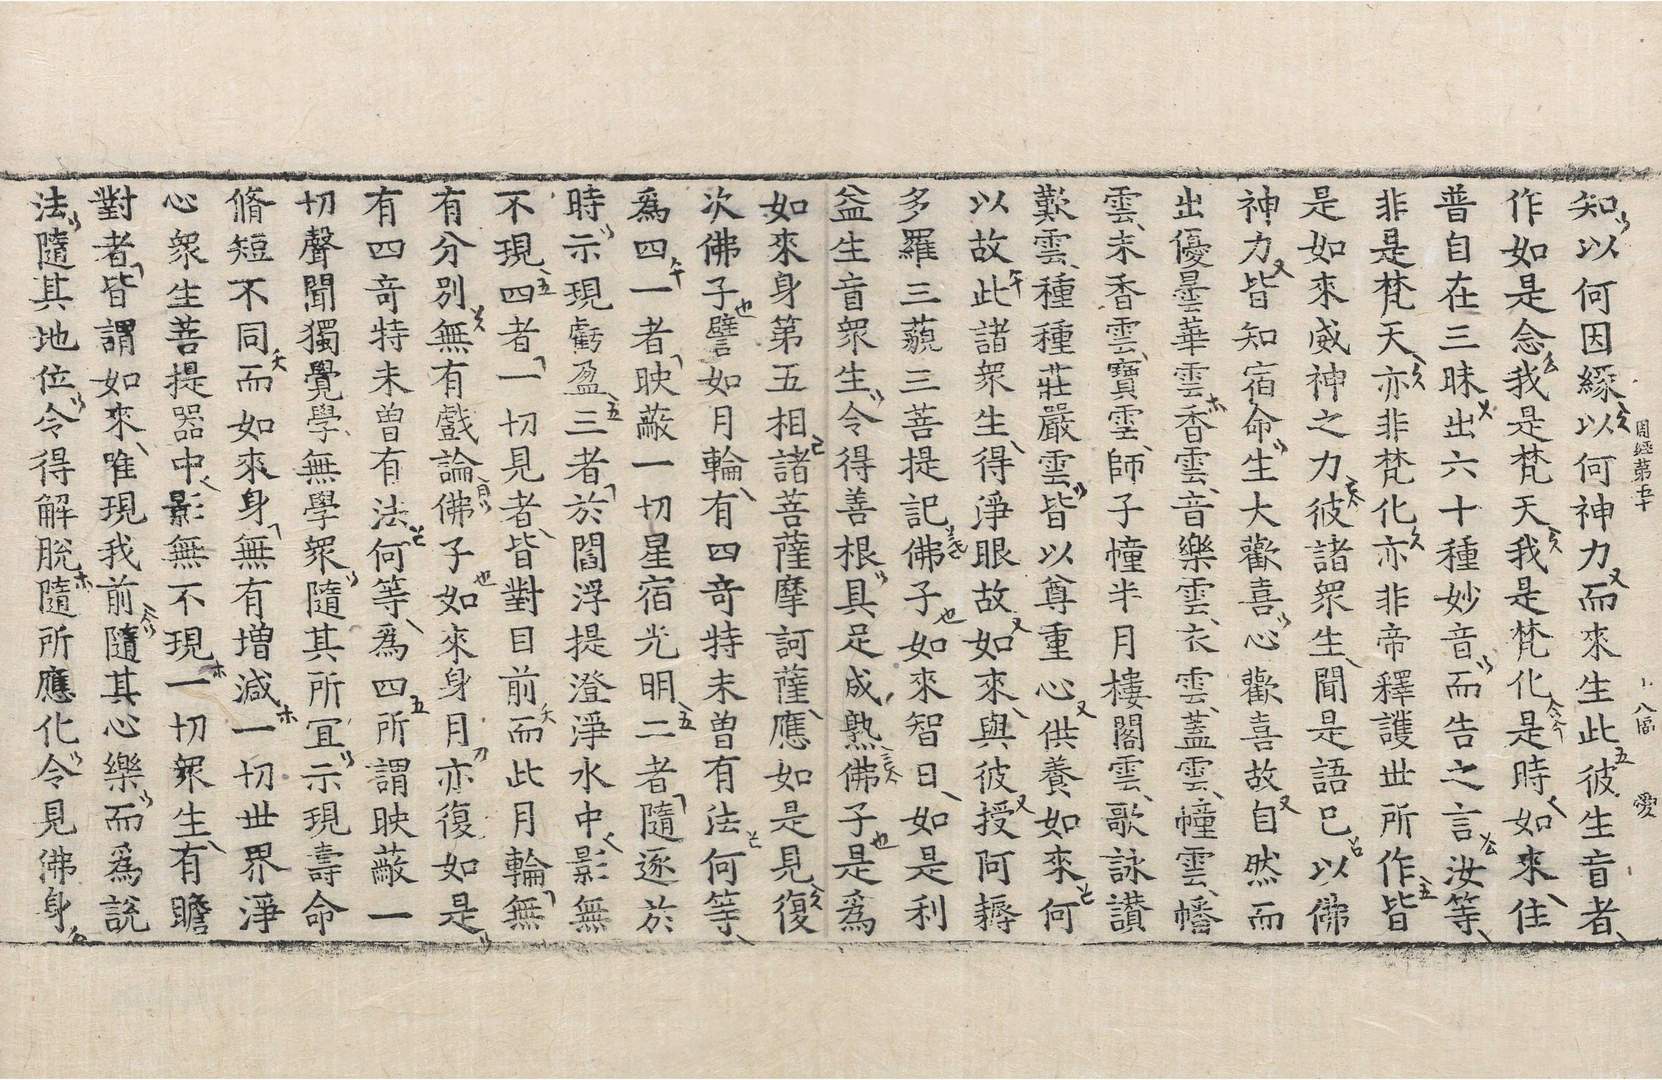 周經第五十 愛
知以何因緣以何神力而來生此彼生盲者
作如是念我是梵天我是梵化是時如來住
普自在三昧出六十種妙音而告之言汝等
非是梵天亦非梵化亦非帝釋護世所作皆
是如來威神之力彼諸衆生聞是語已以佛
神力皆知宿命生大歡喜心歡喜故自然而
出優曇華雲香雲音樂雲衣雲蓋雲幢雲幡
雲末香雲寶雲師子幢半月樓閣雲歌詠讃
歎雲種種莊嚴雲皆以尊重心供養如來何
以故此諸衆生得淨眼故如來與彼授阿耨
多羅三藐三菩提記佛子如來智日如是利
益生盲衆生令得善根具足成熟佛子是爲
如來身第五相諸菩薩摩訶薩應如是見復
次佛子譬如月輪有四奇特未曾有法何等
爲四一者映蔽一切星宿光明二者隨逐於
時示現虧盈三者於閻浮提澄淨水中影無
不現四者一切見者皆對目前而此月輪無
有分別無有戲論佛子如來身月亦復如是
有四奇特未曾有法何等爲四所謂映蔽一
切聲聞獨覺學無學衆隨其所宜示現壽命
脩短不同而如來身無有增減一切世界淨
心衆生菩提器中影無不現一切衆生有瞻
對者皆謂如來唯現我前隨其心樂而爲說
法隨其地位令得解脫隨所應化令見佛身